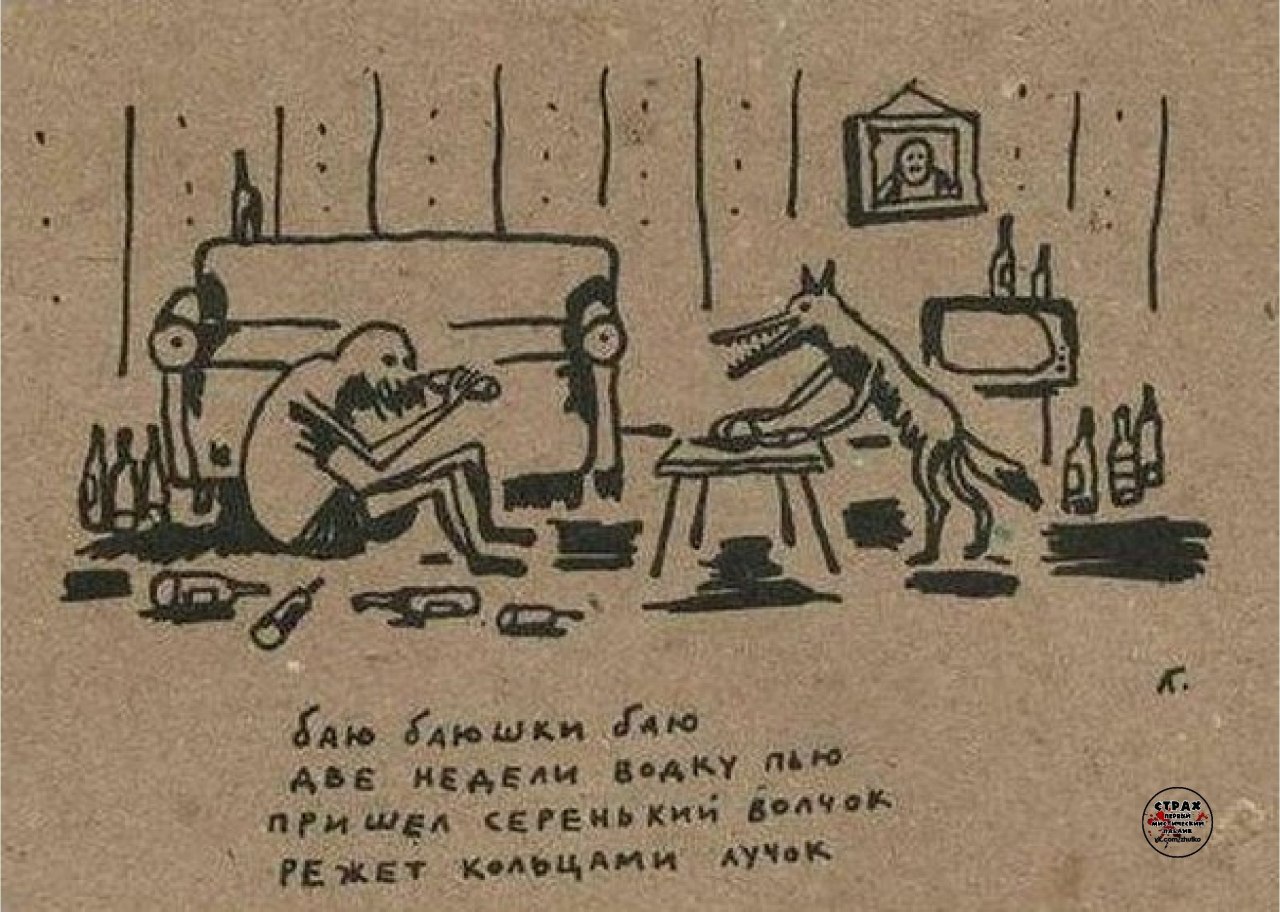 баю баюшки баю
две недели водку пью
пришел серенький волчок
режет кольцами лучок
К.
СТРАХ
ПЕРВЫЙ
МИСТИЧЕСКИЙ
ПАБЛИК
vk.com/zhutko